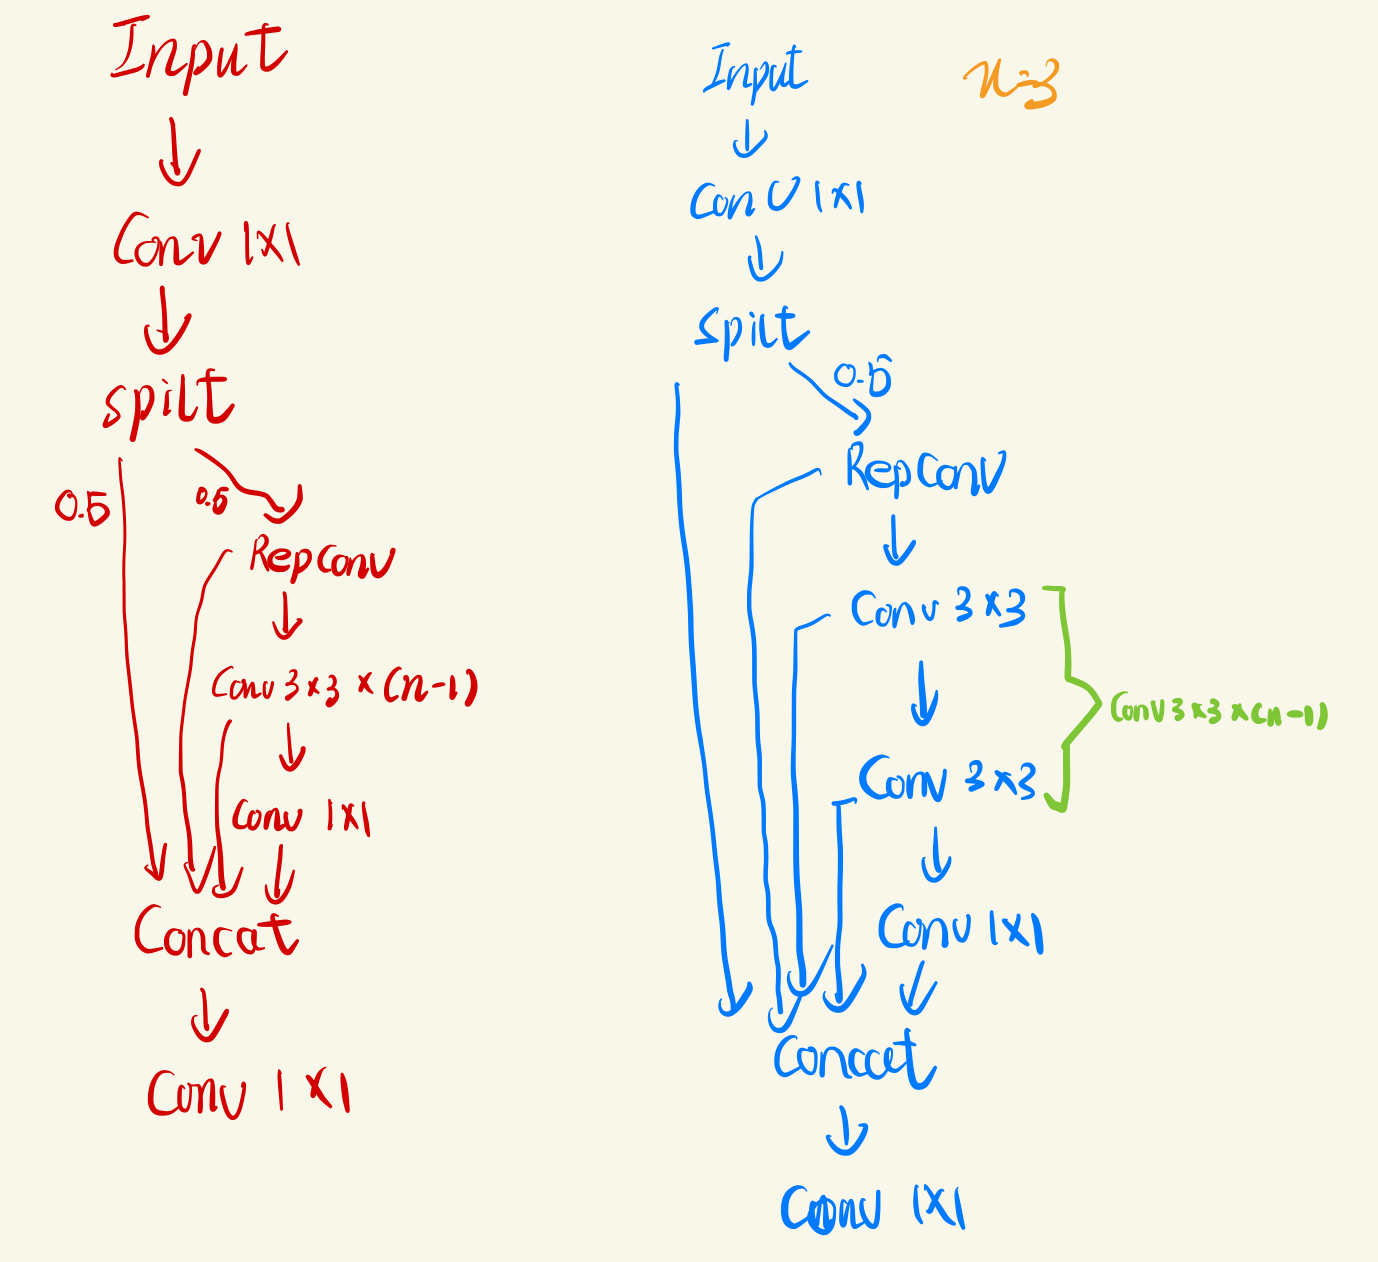 Input
Conv 1×1
spilt
0.5
0.5
RepConv
Conv 3×3 ×(n-1)
Conv 1×1
Concat
Conv 1×1
Input
n=3
Conv 1×1
spilt
0.5
RepConv
Conv 3×3
Conv 3×3 ×(n-1)
Conv 3×3
Conv 1×1
Concat
Conv 1×1